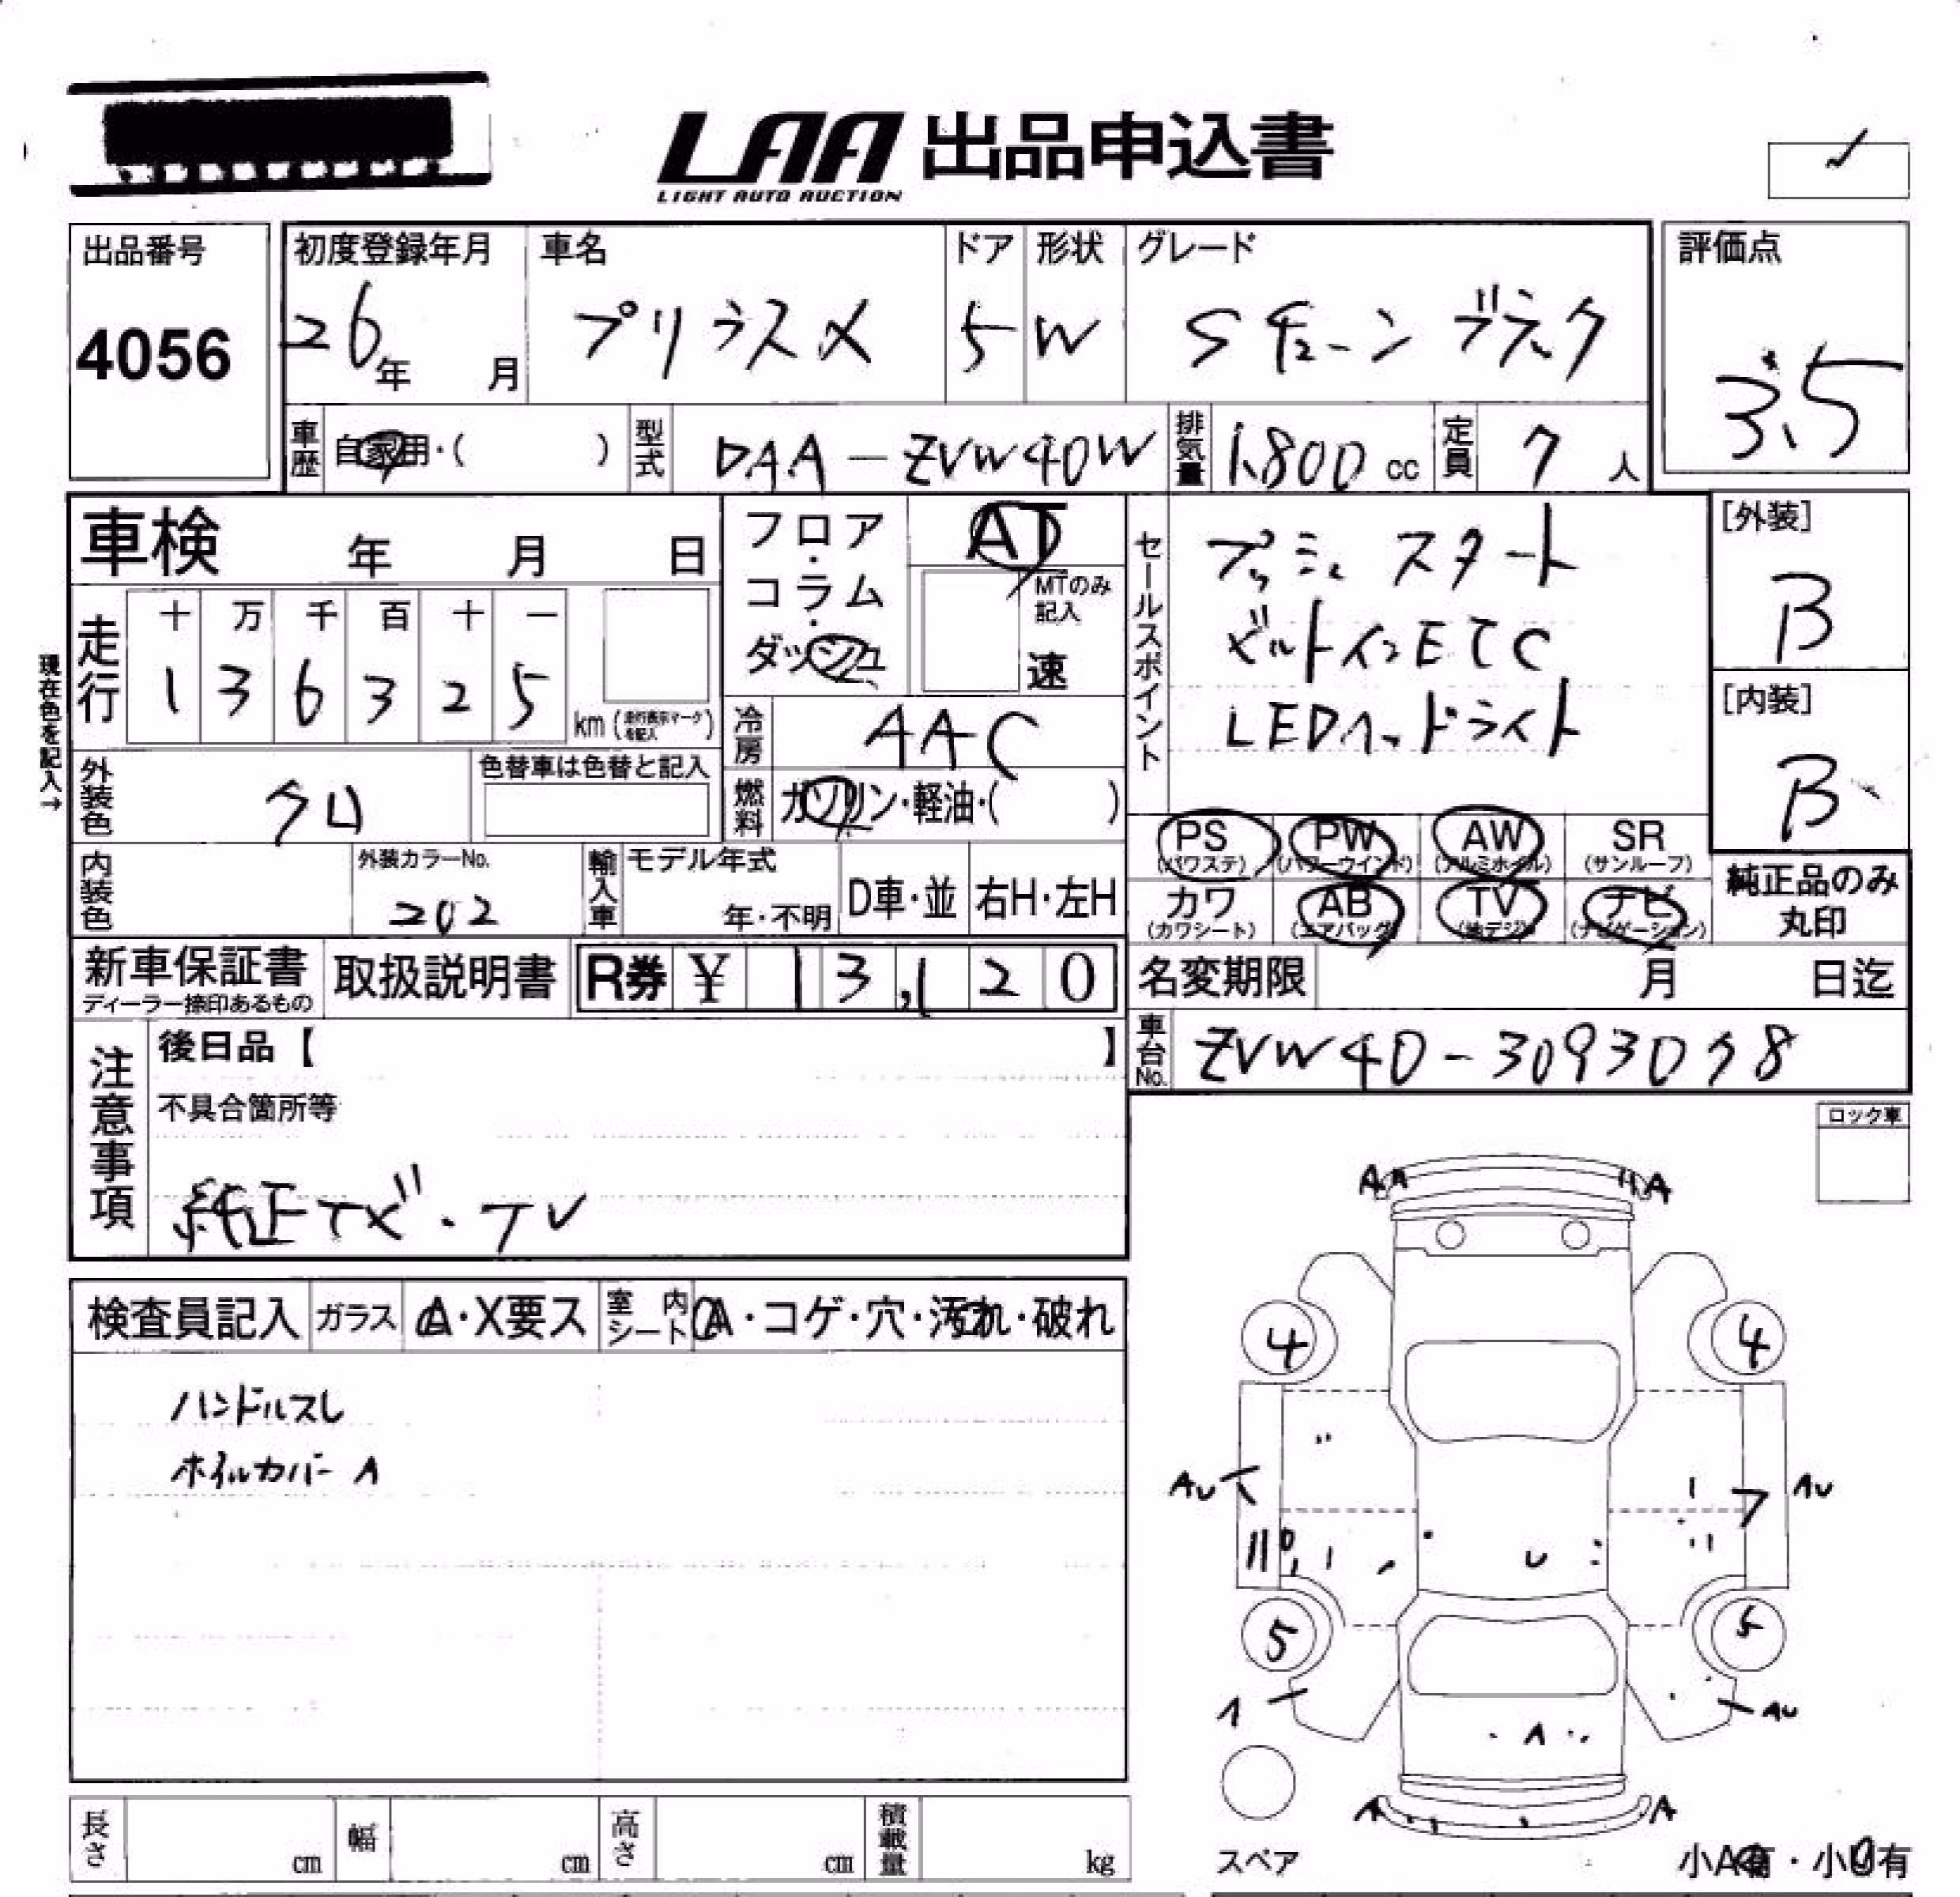 LAA 出品申込書
LIGHT AUTO AUCTION
出品番号
4056
初度登録年月
26年 月
車名
プリウスα
ドア
5
形状
W
グレード
Sチューン ブラック
評価点
3.5
車歴 自家用・( )
型式 DAA-ZVW40W
排気量 1,800 cc
定員 7 人
車検 年 月 日
フロア・コラム・ダッシュ
AT
MTのみ記入
速
セールスポイント
プッシュスタート
ビルトインETC
LEDヘッドライト
[外装]
B
[内装]
B
現在色を記入→
走行
十 万 千 百 十 一
1 3 6 3 2 5
km (走行表示マークを記入)
冷房 AAC
外装色 クロ
色替車は色替と記入
燃料 ガソリン・軽油・( )
PS (パワステ) PW (パワーウインド) AW (アルミホイル) SR (サンルーフ)
カワ (カワシート) AB (エアバッグ) TV (地デジ) ナビ (ナビゲーション)
純正品のみ丸印
内装色
外装カラーNo.
202
輸入車 モデル年式
年・不明
D車・並 右H・左H
新車保証書
ディーラー捺印あるもの
取扱説明書
R券 ¥ 13,120
名変期限 月 日迄
車台No. ZVW40-3093078
注意事項
後日品【 】
不具合箇所等
純正ナビ・TV
ロック車
検査員記入 ガラス A・X要ス 室内シート A・コゲ・穴・汚れ・破れ
ハンドルスレ
ホイルカバーA
A A
4 4
AU AU
U
5 5
A AU
A
A A
スペア
小A有・小U有
長さ cm 幅 cm 高さ cm 積載量 kg